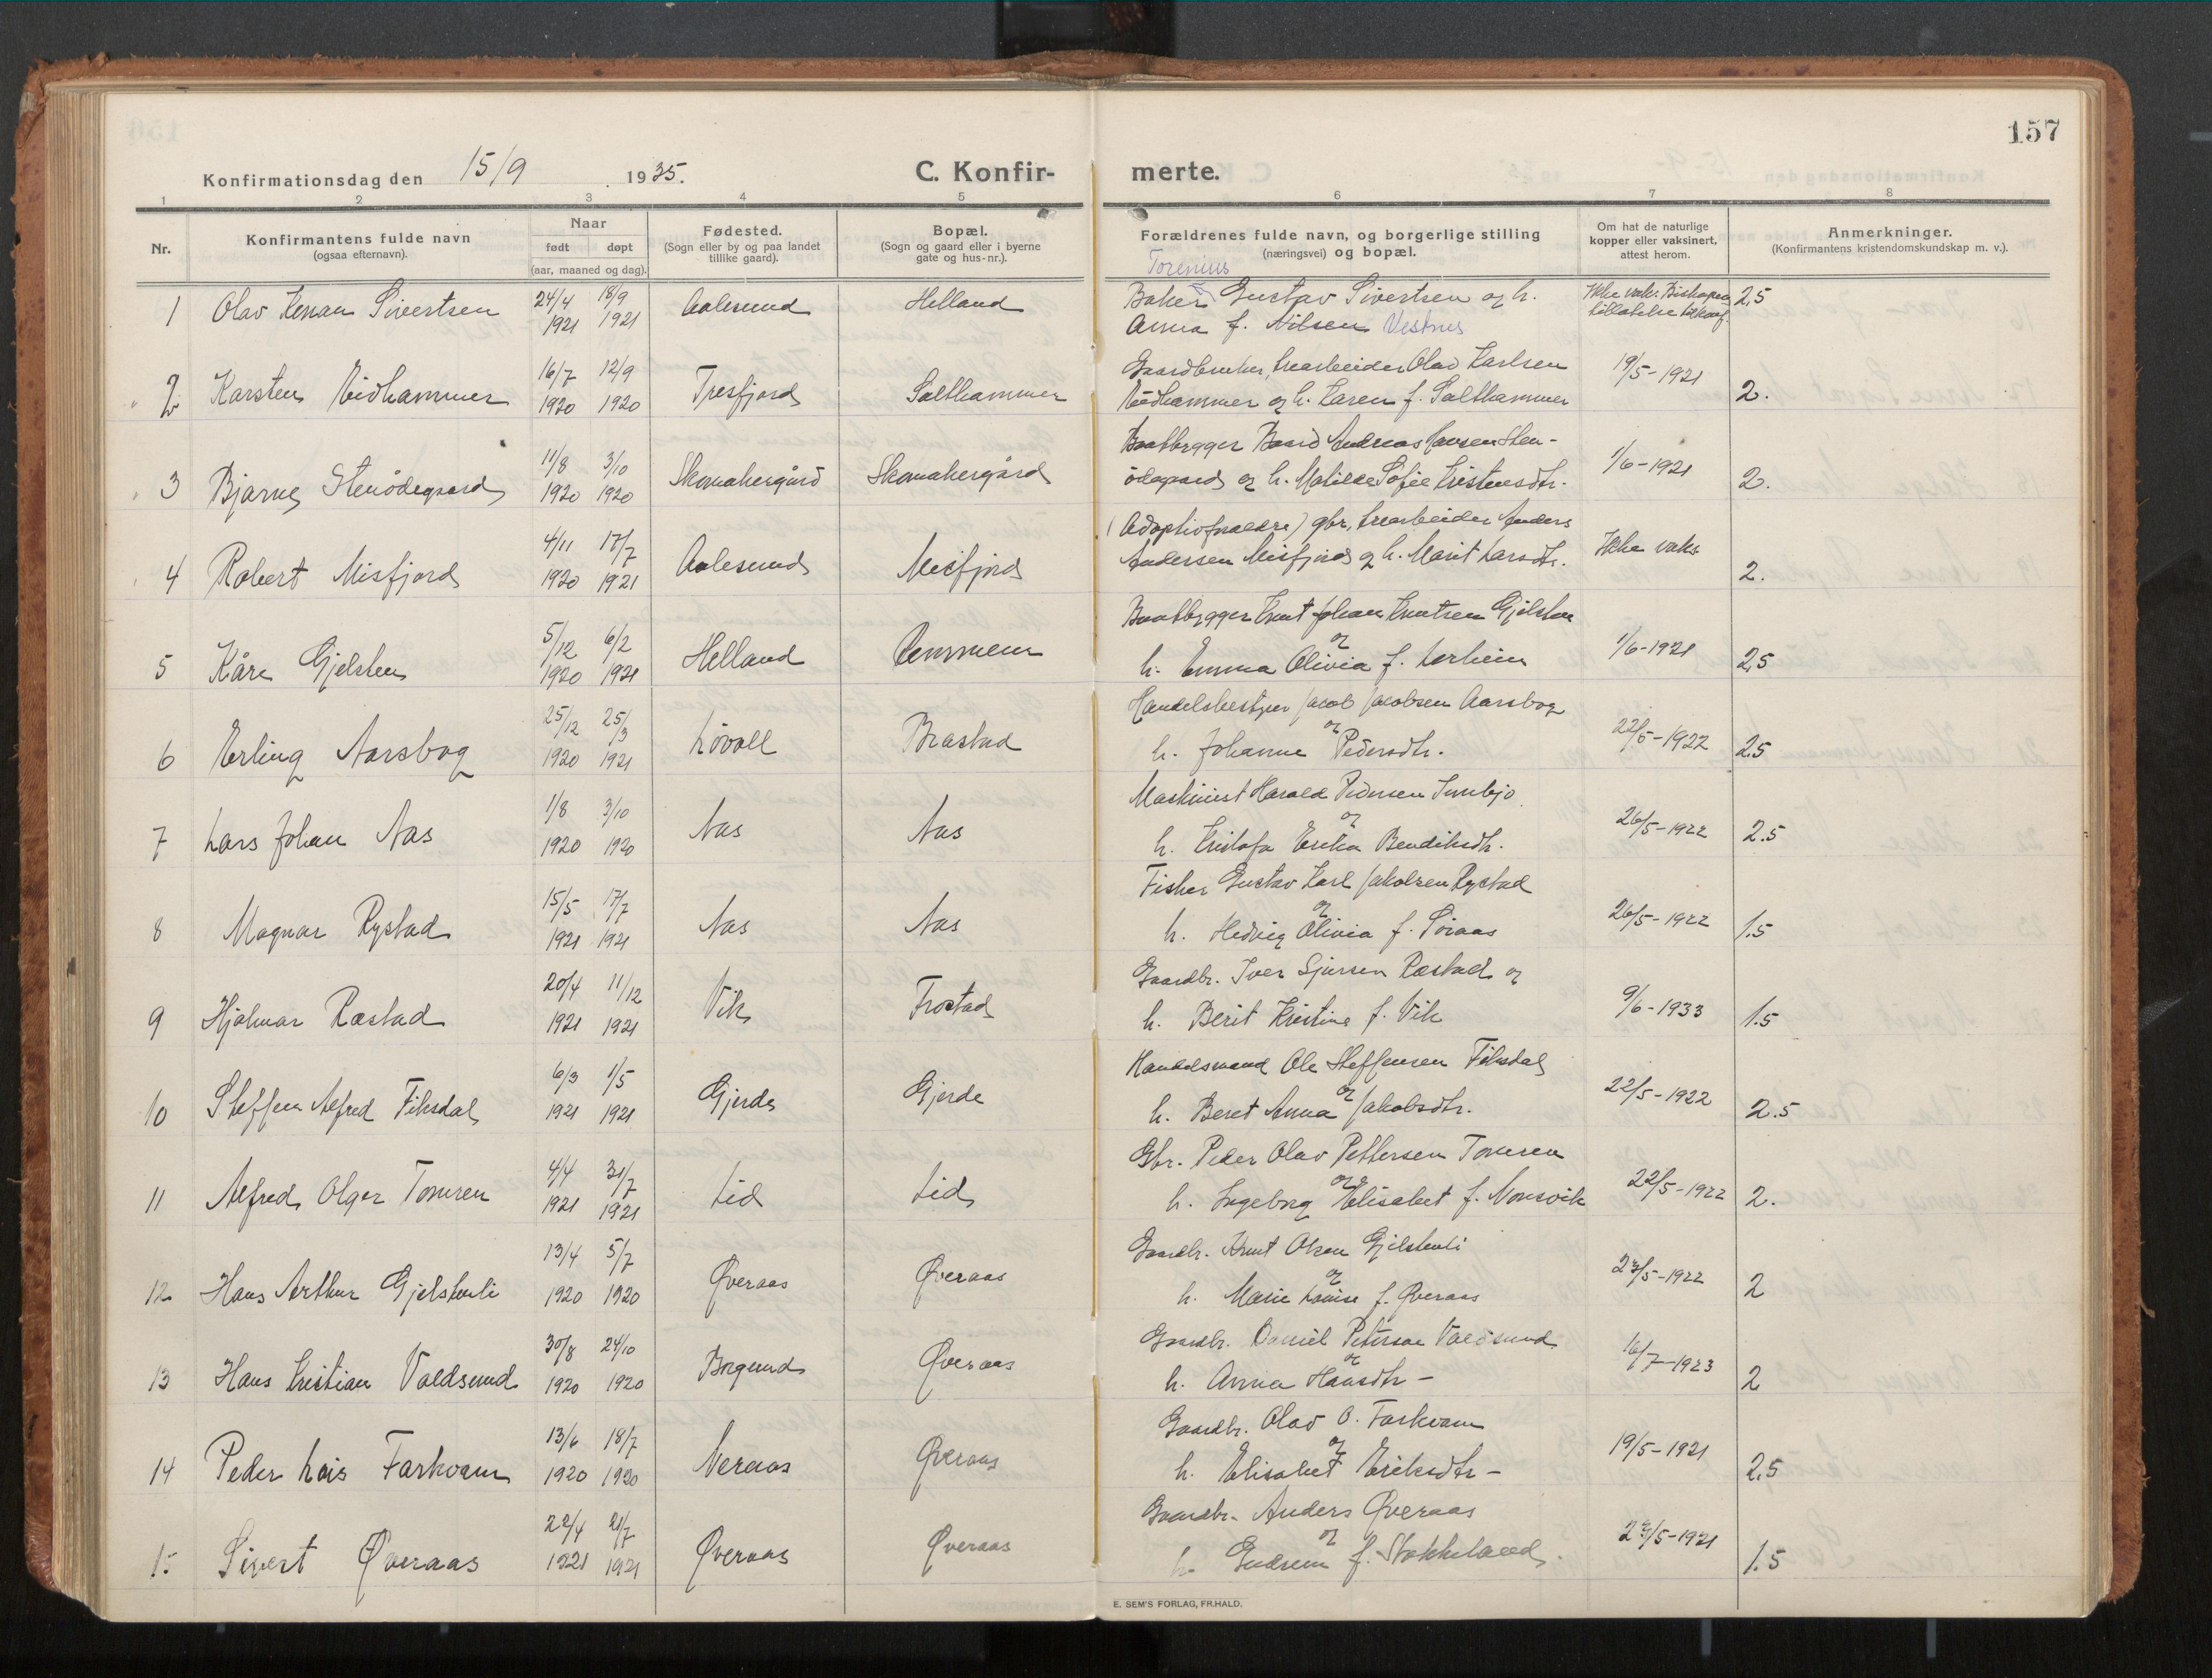 157
Konfirmationsdag den 15/9 1935.
C. Konfir-
merte.
1 2 3 4 5 6 7 8
Nr.
Konfirmantens fulde navn
(ogsaa efternavn).
Naar
født døpt
(aar, maaned og dag).
Fødested.
(Sogn eller by og paa landet
tillike gaard).
Bopæl.
(Sogn og gaard eller i byerne
gate og hus-nr.).
Forældrenes fulde navn, og borgerlige stilling
(næringsvei) og bopæl.
Om hat de naturlige
kopper eller vaksinert,
attest herom.
Anmerkninger.
(Konfirmantens kristendomskundskap m. v.).
Torenius
1 Olav Kenan Sivertsen 24/4 1921 18/9 1921 Aalesund Helland
Baker Gustav Sivertsen og h.
Anna f. Nilsen Vestnes
Ikke vaks. Biskopens
tillatelse
2,5
2 Karsten Eidhammer 16/7 1920 12/9 1920 Tresfjord Salthammer
Gaardbruker, trearbeider Olav Karlsen
Eidhammer og h. Karen f. Salthammer
19/5-1921
2.
3 Bjarne Stenødegaard 11/8 1920 3/10 1920 Skomakergård Skomakergård
Baatbygger Baard Andreas Jansen Sten-
ødegaard og h. Matilde Sofie Kristensdtr.
1/6-1921
2.
4 Robert Misfjord 4/11 1920 17/7 1921 Aalesund Misfjord
(Adoptivforældre) gbr, trearbeider Anders
Andersen Misfjord og h. Marit Larsdtr.
Ikke vaks
2.
5 Kåre Gjelsten 5/12 1920 6/2 1921 Helland Remmem
Baatbygger Knut Johan Knutsen Gjelsten
og
h. Emma Olivia f. Lerheim
1/6-1921
2,5
6 Erling Aarsbog 25/12 1920 25/3 1921 Løvoll Brastad
Handelsbestyrer Jacob Jacobsen Aarsbog
og
h. Johanne Pedersdtr.
22/5-1922
2,5
7 Lars Johan Aas 1/8 1920 3/10 1920 Aas Aas
Maskinist Harald Pedersen
og
h. Kristofa Erika Bendiksdtr.
26/5-1922
2.5
8 Magnar Rystad 15/5 1921 17/7 1921 Aas Aas
Fisker Gustav Karl Jakobsen Rystad
og
h. Hedvig Olivia f. Søraas
26/5-1922
1.5
9 HjalmarRæstad 20/4 1921 11/12 1921 Vik Frostad
Gaardbr. Iver Sjursen Ræstad og
h. Berit Kristine f. Vik
9/6-1933
1.5
10 Steffen Alfred Fiksdal 6/3 1921 1/5 1921 Gjerde Gjerde
Handelsmand Ole Steffensen Fiksdal
og
h. Beret Anna Jakobsdtr.
22/5-1922
2.5
11 Alfred Olger Tomren 4/4 1921 31/7 1921 Lid Lid
Gbr. Peder Olav Pettersen Tomren
og
h. Ingeborg Elisabet f. Monsvik
22/5-1922
2.
12 Hans Arthur Gjelstenli 13/4 1920 5/7 1920 Øveraas Øveraas
Gaardbr. Knut Olsen Gjelstenli
og
h. Marie Louise f. Øveraas
/5-1922
2
13 Hans Kristian Valdsund 30/8 1920 24/10 1920 Borgund Øveraas
Gaardbr. Daniel Peterson Valdsund
og
h. Anna Hansdtr -
16/7-1923
2
14 Peder Farkvam 13/6 1920 18/7 1920 Neraas Øveraas
Gaardbr. Olav O. Farkvam
og
h. Elisabet Eriksdtr -
19/5-1921
2,5
15 Sivert Øveraas 22/4 1921 21/7 1921 Øveraas Øveraas
Gaardbr. Anders Øveraas
og
h. Gudrun f. Stokkeland.
/5-1921
1.5
E. SEM'S FORLAG, FR.HALD.